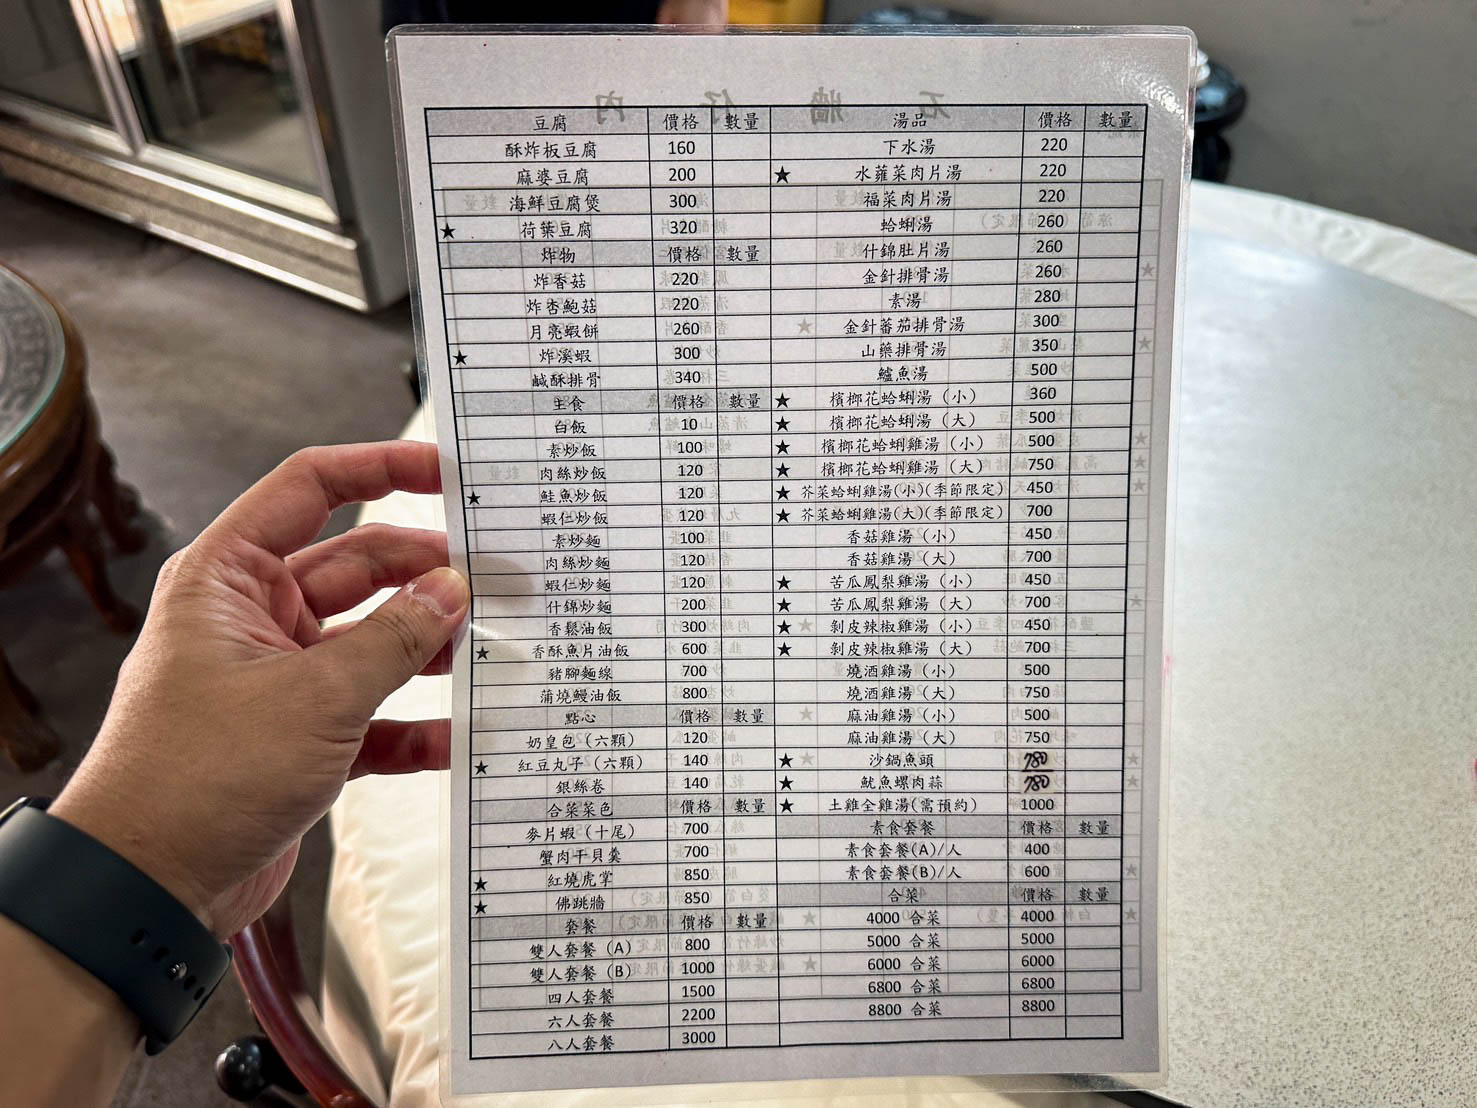 豆腐 價格 數量
酥炸板豆腐 160
麻婆豆腐 200
海鮮豆腐煲 300
★ 荷葉豆腐 320
炸物 價格 數量
炸香菇 220
炸杏鮑菇 220
月亮蝦餅 260
★ 炸溪蝦 300
鹹酥排骨 340
主食 價格 數量
白飯 10
素炒飯 100
肉絲炒飯 120
★ 鮭魚炒飯 120
蝦仁炒飯 120
素炒麵 100
肉絲炒麵 120
蝦仁炒麵 120
什錦炒麵 200
香鬆油飯 300
★ 香酥魚片油飯 600
豬腳麵線 700
蒲燒鰻油飯 800
點心 價格 數量
奶皇包（六顆） 120
★ 紅豆丸子（六顆） 140
銀絲卷 140
合菜菜色 價格 數量
麥片蝦（十尾） 700
蟹肉干貝羹 700
★ 紅燒虎掌 850
★ 佛跳牆 850
套餐 價格 數量
雙人套餐（A） 800
雙人套餐（B） 1000
四人套餐 1500
六人套餐 2200
八人套餐 3000
湯品 價格 數量
下水湯 220
★ 水蕹菜肉片湯 220
福菜肉片湯 220
蛤蜊湯 260
什錦肚片湯 260
金針排骨湯 260
素湯 280
金針蕃茄排骨湯 300
山藥排骨湯 350
鱸魚湯 500
★ 檳榔花蛤蜊湯（小） 360
★ 檳榔花蛤蜊湯（大） 500
★ 檳榔花蛤蜊雞湯（小） 500
★ 檳榔花蛤蜊雞湯（大） 750
★ 芥菜蛤蜊雞湯(小)(季節限定) 450
★ 芥菜蛤蜊雞湯(大)(季節限定) 700
香菇雞湯（小） 450
香菇雞湯（大） 700
★ 苦瓜鳳梨雞湯（小） 450
★ 苦瓜鳳梨雞湯（大） 700
★ 剝皮辣椒雞湯（小） 450
★ 剝皮辣椒雞湯（大） 700
燒酒雞湯（小） 500
燒酒雞湯（大） 750
麻油雞湯（小） 500
麻油雞湯（大） 750
★ 沙鍋魚頭 780
★ 魷魚螺肉蒜 780
★ 土雞全雞湯(需預約) 1000
素食套餐 價格 數量
素食套餐(A)/人 400
素食套餐(B)/人 600
合菜 價格 數量
4000 合菜 4000
5000 合菜 5000
6000 合菜 6000
6800 合菜 6800
8800 合菜 8800